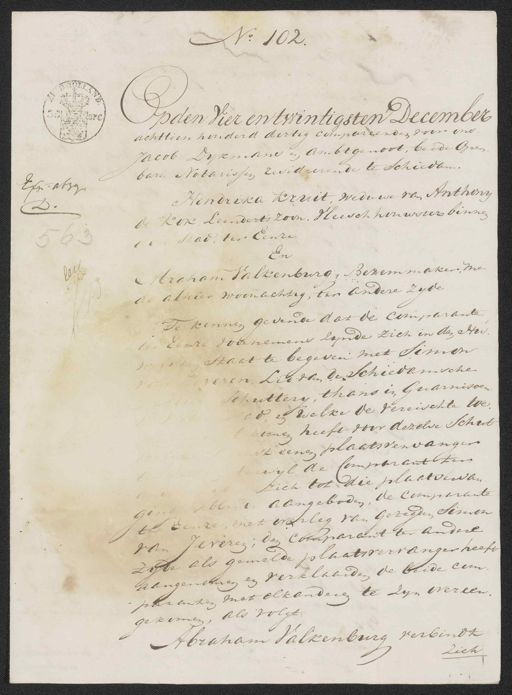 No. 102.
Op den Vier en twintigsten December
achttien honderd dertig compareerden voor ons
Jacob Dijkman en ambtgenoot, beide Open
bare Notarissen residerende te Schiedam.
Hendrika Kruit, weduwe van Anthony
de Kok Leendertszoon, Vleeschhouwster binnen
deze Stad, ter Eenre
En
Abraham Valkenburg, Bezemmaker, me
de alhier woonachtig, ter andere zyde
Te kennen gevende dat de comparante
ter Eenre voornemens zynde zich in den Hu
Staat te begeven met Simon
van Jeveren, Lid van de Schiedamsche
Schuttery, thans in Guarnisoen
en welke de vereischte toe
heeft voor dezelve Schut
eenen plaatsvervanger
wyl de Comparant ten
zich tot die plaatsvervan
aangeboden, de comparante
ter Eenre, met overleg van gezegden Simon
van Jeveren, den comparant ter andere
zyde als gemelde plaatsvervanger heeft
aangenomen en verklaarden de beide com
paranten met elkanderen te zyn overeen
gekomen, als volgt
Abraham Valkenburg verbindt
zich
563